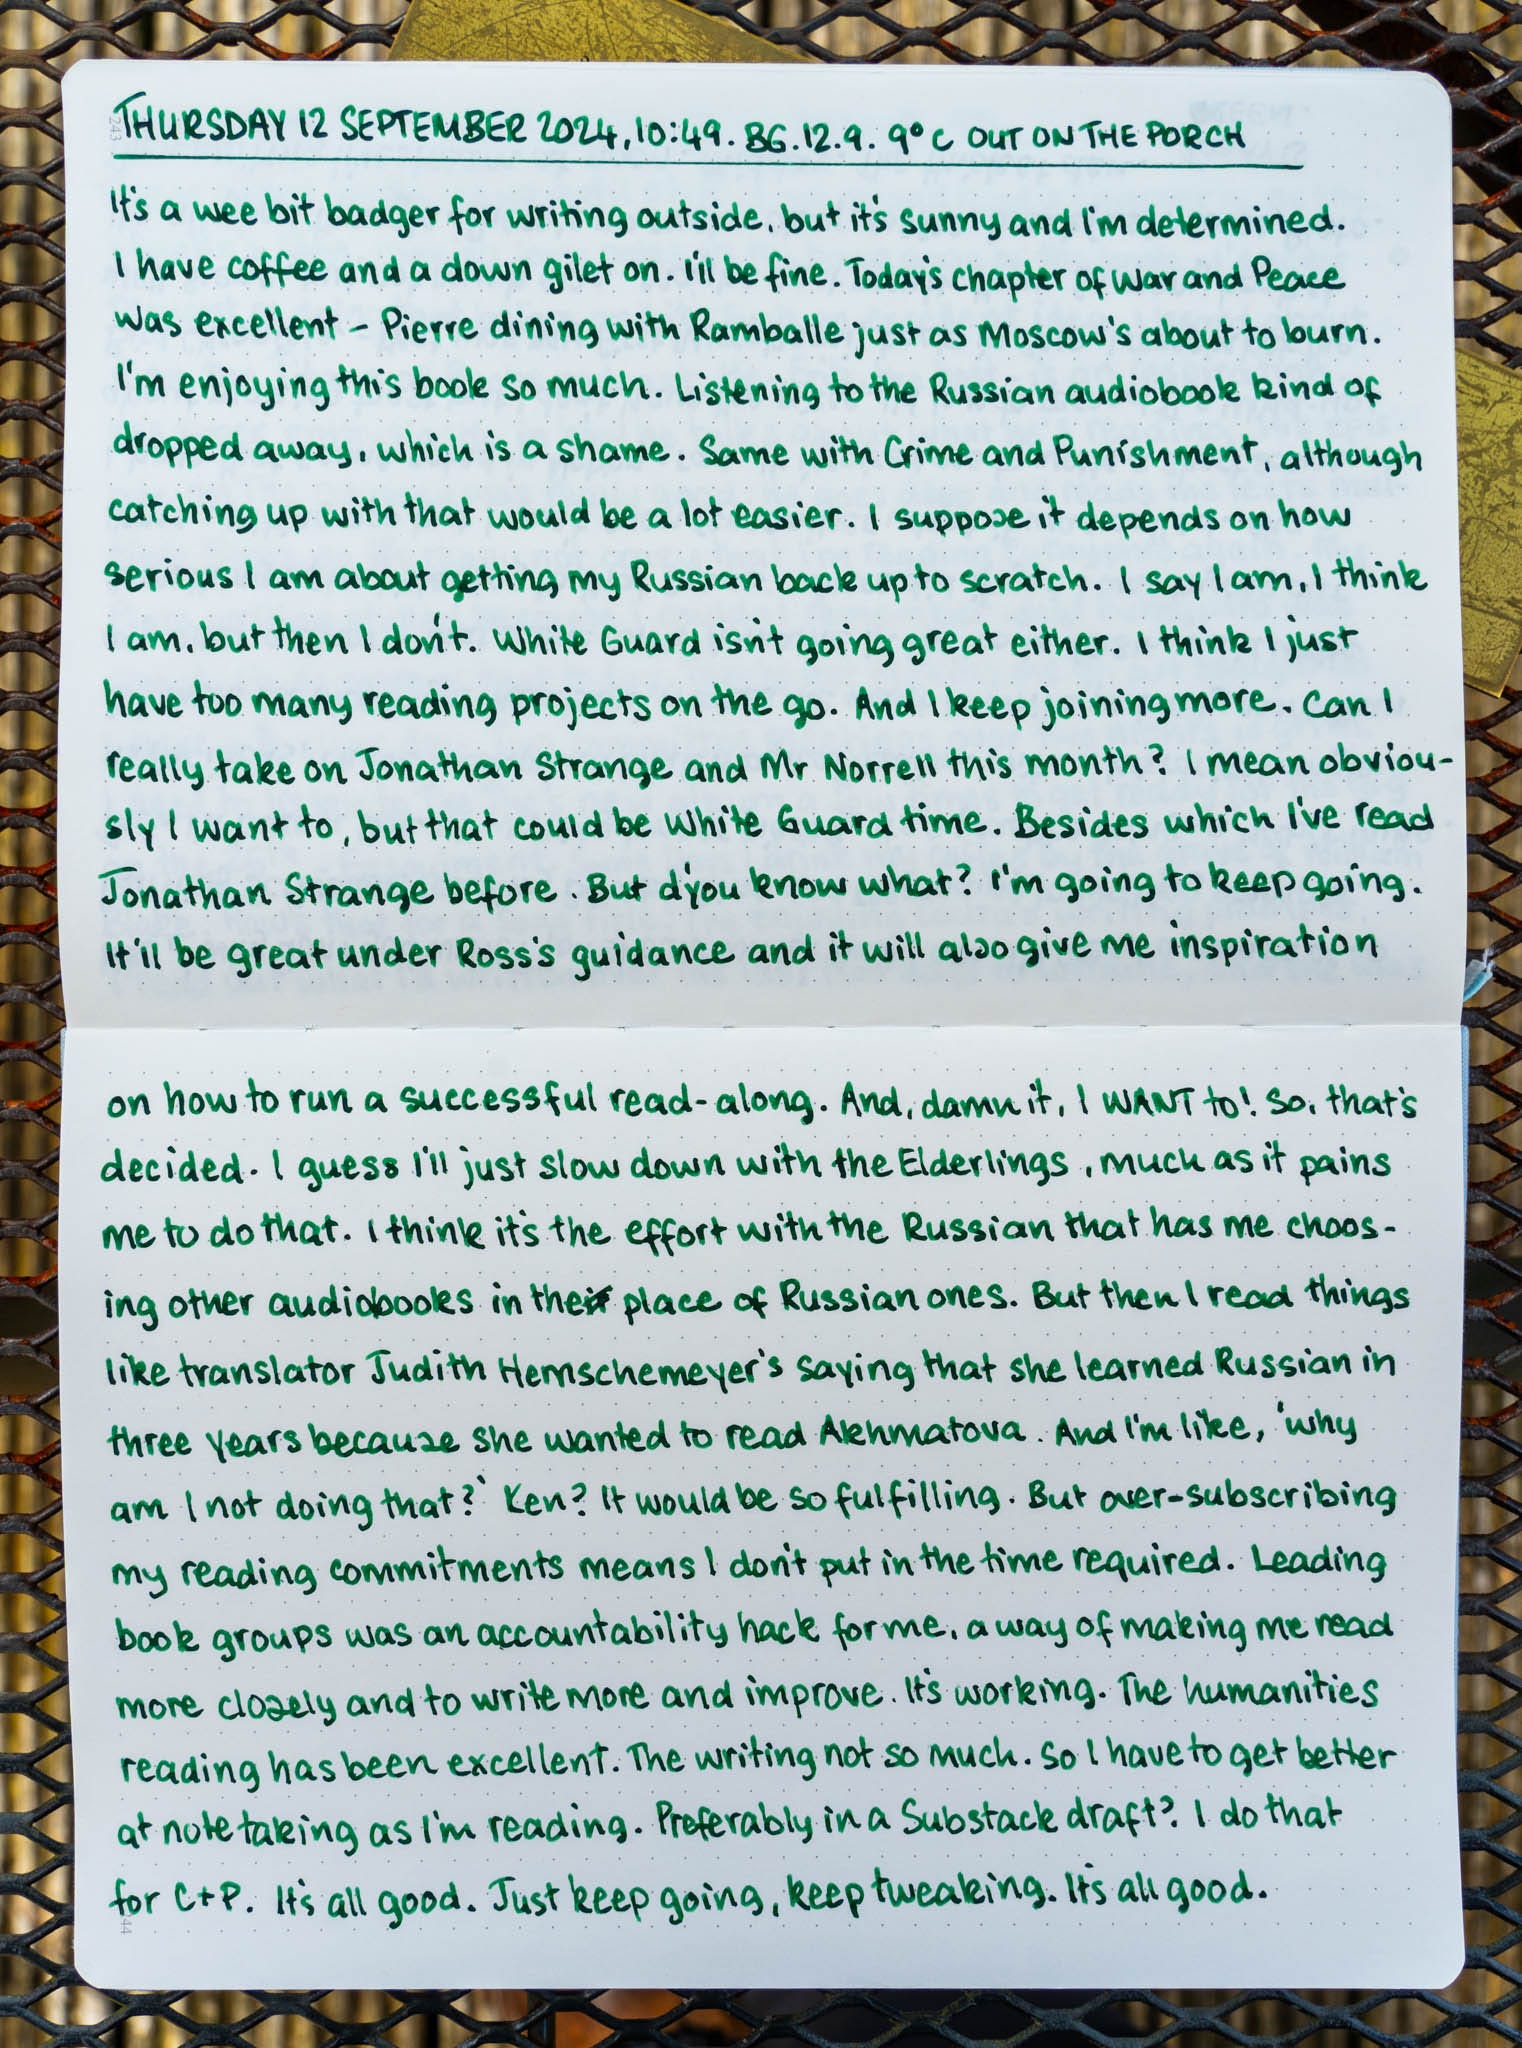 THURSDAY 12 SEPTEMBER 2024, 10:49. BG. 12.9. 9°C OUT ON THE PORCH
It's a wee bit badger for writing outside, but it's sunny and I'm determined.
I have coffee and a down gilet on. I'll be fine. Today's chapter of War and Peace
was excellent – Pierre dining with Ramballe just as Moscow's about to burn.
I'm enjoying this book so much. Listening to the Russian audiobook kind of
dropped away, which is a shame. Same with Crime and Punishment, although
catching up with that would be a lot easier. I suppose it depends on how
serious I am about getting my Russian back up to scratch. I say I am, I think
I am, but then I don't. White Guard isn't going great either. I think I just
have too many reading projects on the go. And I keep joining more. Can I
really take on Jonathan Strange and Mr Norrell this month? I mean obviou-
sly I want to, but that could be White Guard time. Besides which I've read
Jonathan Strange before. But d'you know what? I'm going to keep going.
It'll be great under Ross's guidance and it will also give me inspiration
on how to run a successful read-along. And, damn it, I WANT to! So, that's
decided. I guess I'll just slow down with the Elderlings, much as it pains
me to do that. I think it's the effort with the Russian that has me choos-
ing other audiobooks in the place of Russian ones. But then I read things
like translator Judith Hemschemeyer's saying that she learned Russian in
three years because she wanted to read Akhmatova. And I'm like, 'why
am I not doing that?' Ken? It would be so fulfilling. But over-subscribing
my reading commitments means I don't put in the time required. Leading
book groups was an accountability hack for me, a way of making me read
more closely and to write more and improve. It's working. The humanities
reading has been excellent. The writing not so much. So I have to get better
at note taking as I'm reading. Preferably in a Substack draft? I do that
for C+P. It's all good. Just keep going, keep tweaking. It's all good.
243
244